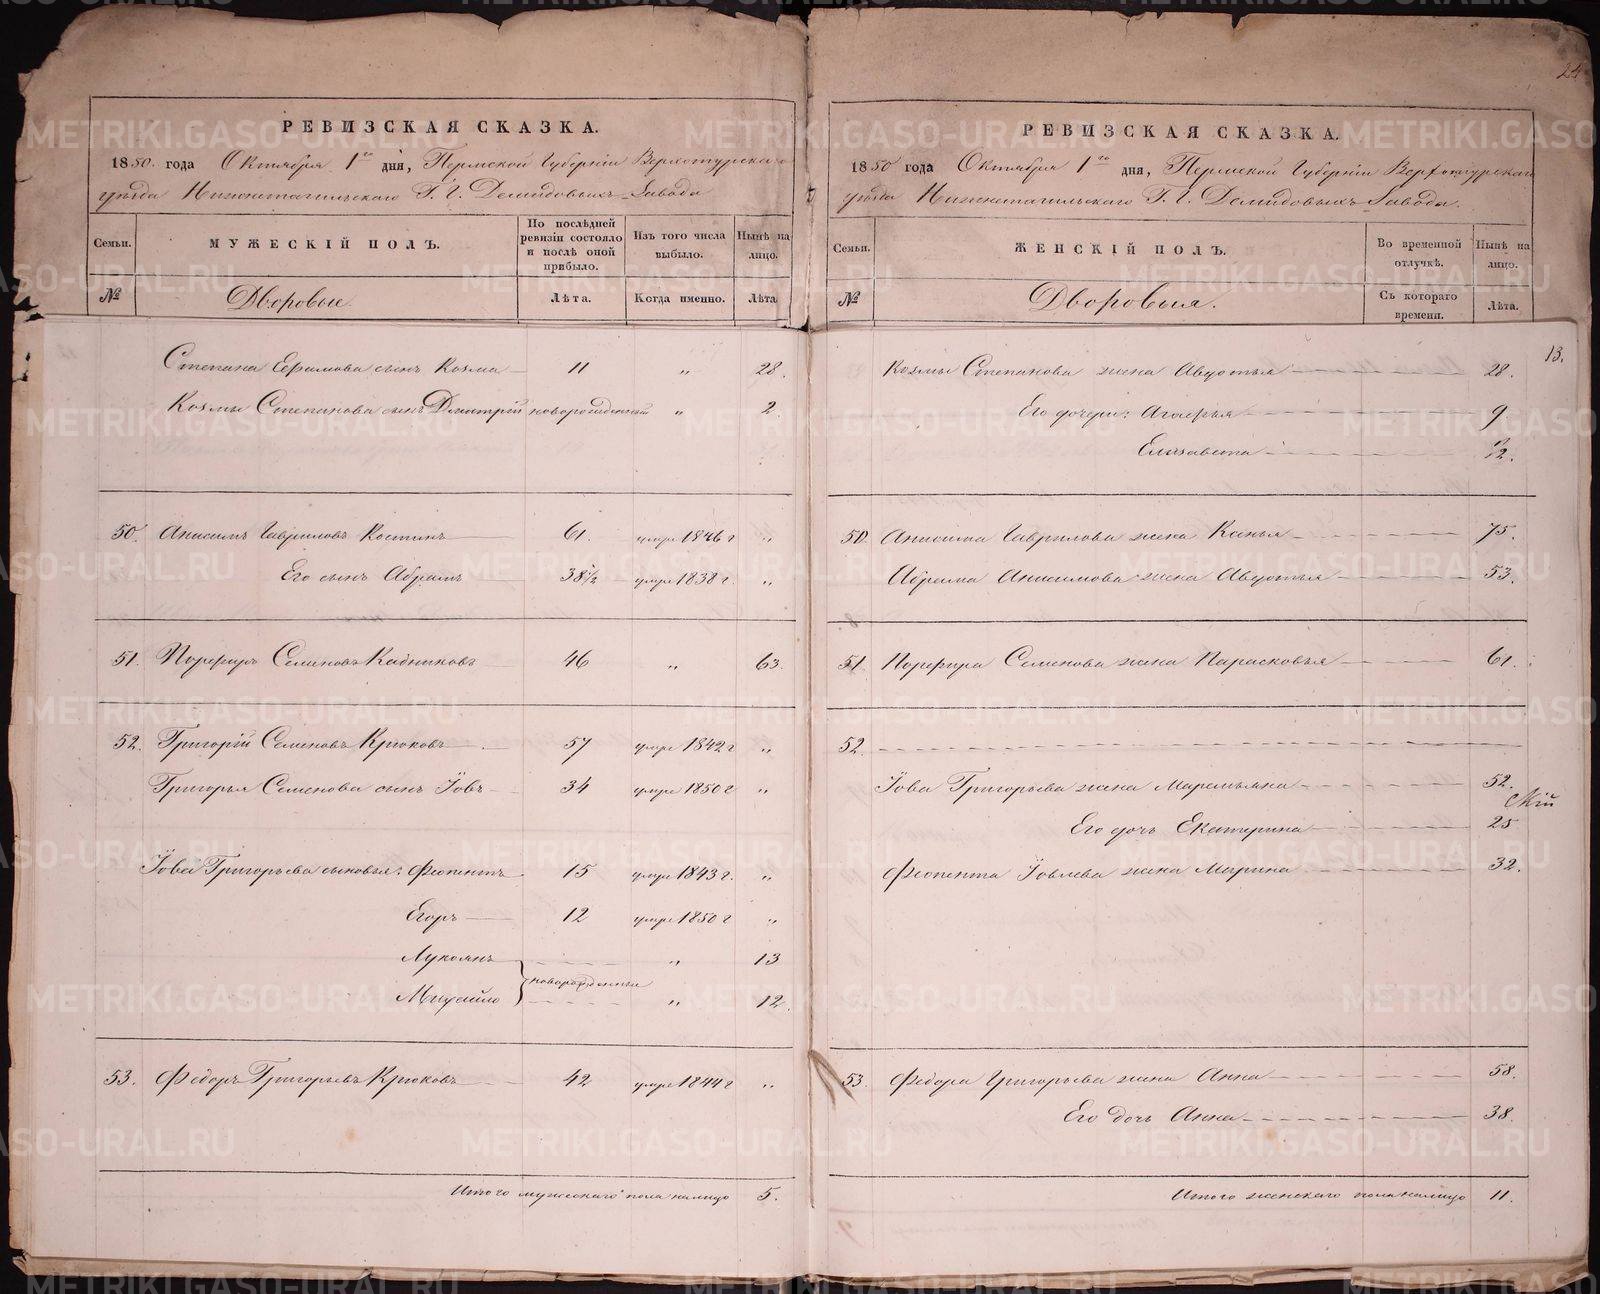 24
РЕВИЗСКАЯ СКАЗКА.
1850. года Октября 1го дня, Пермской Губерніи Верхотурскаго
уѣзда Нижнетагильскаго Г. Г. Демидовыхъ Завода
Семьи. МУЖЕСКІЙ ПОЛЪ. По послѣдней ревизіи состояло и послѣ оной прибыло. Изъ того числа выбыло. Нынѣ на лицо.
№ Дворовые Лѣта. Когда именно. Лѣта
Степана Ефимова сынъ Козма 11 „ 28.
Козмы Степанова сынъ Дмитрій новорожденный „ 2.
50. Анисимъ Гавриловъ Костинъ 61. умре 1846 г „
Его сынъ Абрамъ 38 1/2 умре 1838 г. „
51. Порфиръ Семеновъ Кадниковъ 46 „ 63.
52. Григорій Семеновъ Крюковъ 57 умре 1842 г „
Григорья Семенова сынъ Іовъ 34 умре 1850 г „
Іова Григорьева сыновья: Феопентъ 15 умре 1843 г. „
Егоръ 12 умре 1850 г „
Лукоянъ „ 13
новорожденные
Михайло „ 12.
53. Федоръ Григорьевъ Крюковъ 42 умре 1844 г „
Итого мужескаго пола налицо 5.
РЕВИЗСКАЯ СКАЗКА.
1850 года Октября 1го дня, Пермской Губерніи Верхотурскаго
уѣзда Нижнетагильскаго Г. Г. Демидовыхъ Завода.
Семьи. ЖЕНСКІЙ ПОЛЪ. Во временной отлучкѣ. Нынѣ на лицо.
№ Дворовыя. Съ котораго времени. Лѣта.
13.
Козмы Степанова жена Авдотья 28.
Его дочери: Агафья 9.
Елизавета
50 Анисима Гаврилова жена Ксенья 75.
Абрама Анисимова жена Авдотья 53.
51. Порфира Семенова жена Парасковья 61.
52
Іова Григорьева жена Маремьяна 52.
Его дочь Екатерина 25
Феопента Іовлева жена Марина 32.
53 Федора Григорьева жена Анна 58.
Его дочь Анна 38.
Итого женскаго пола налицо 11.
METRIKI.GASO-URAL.RU